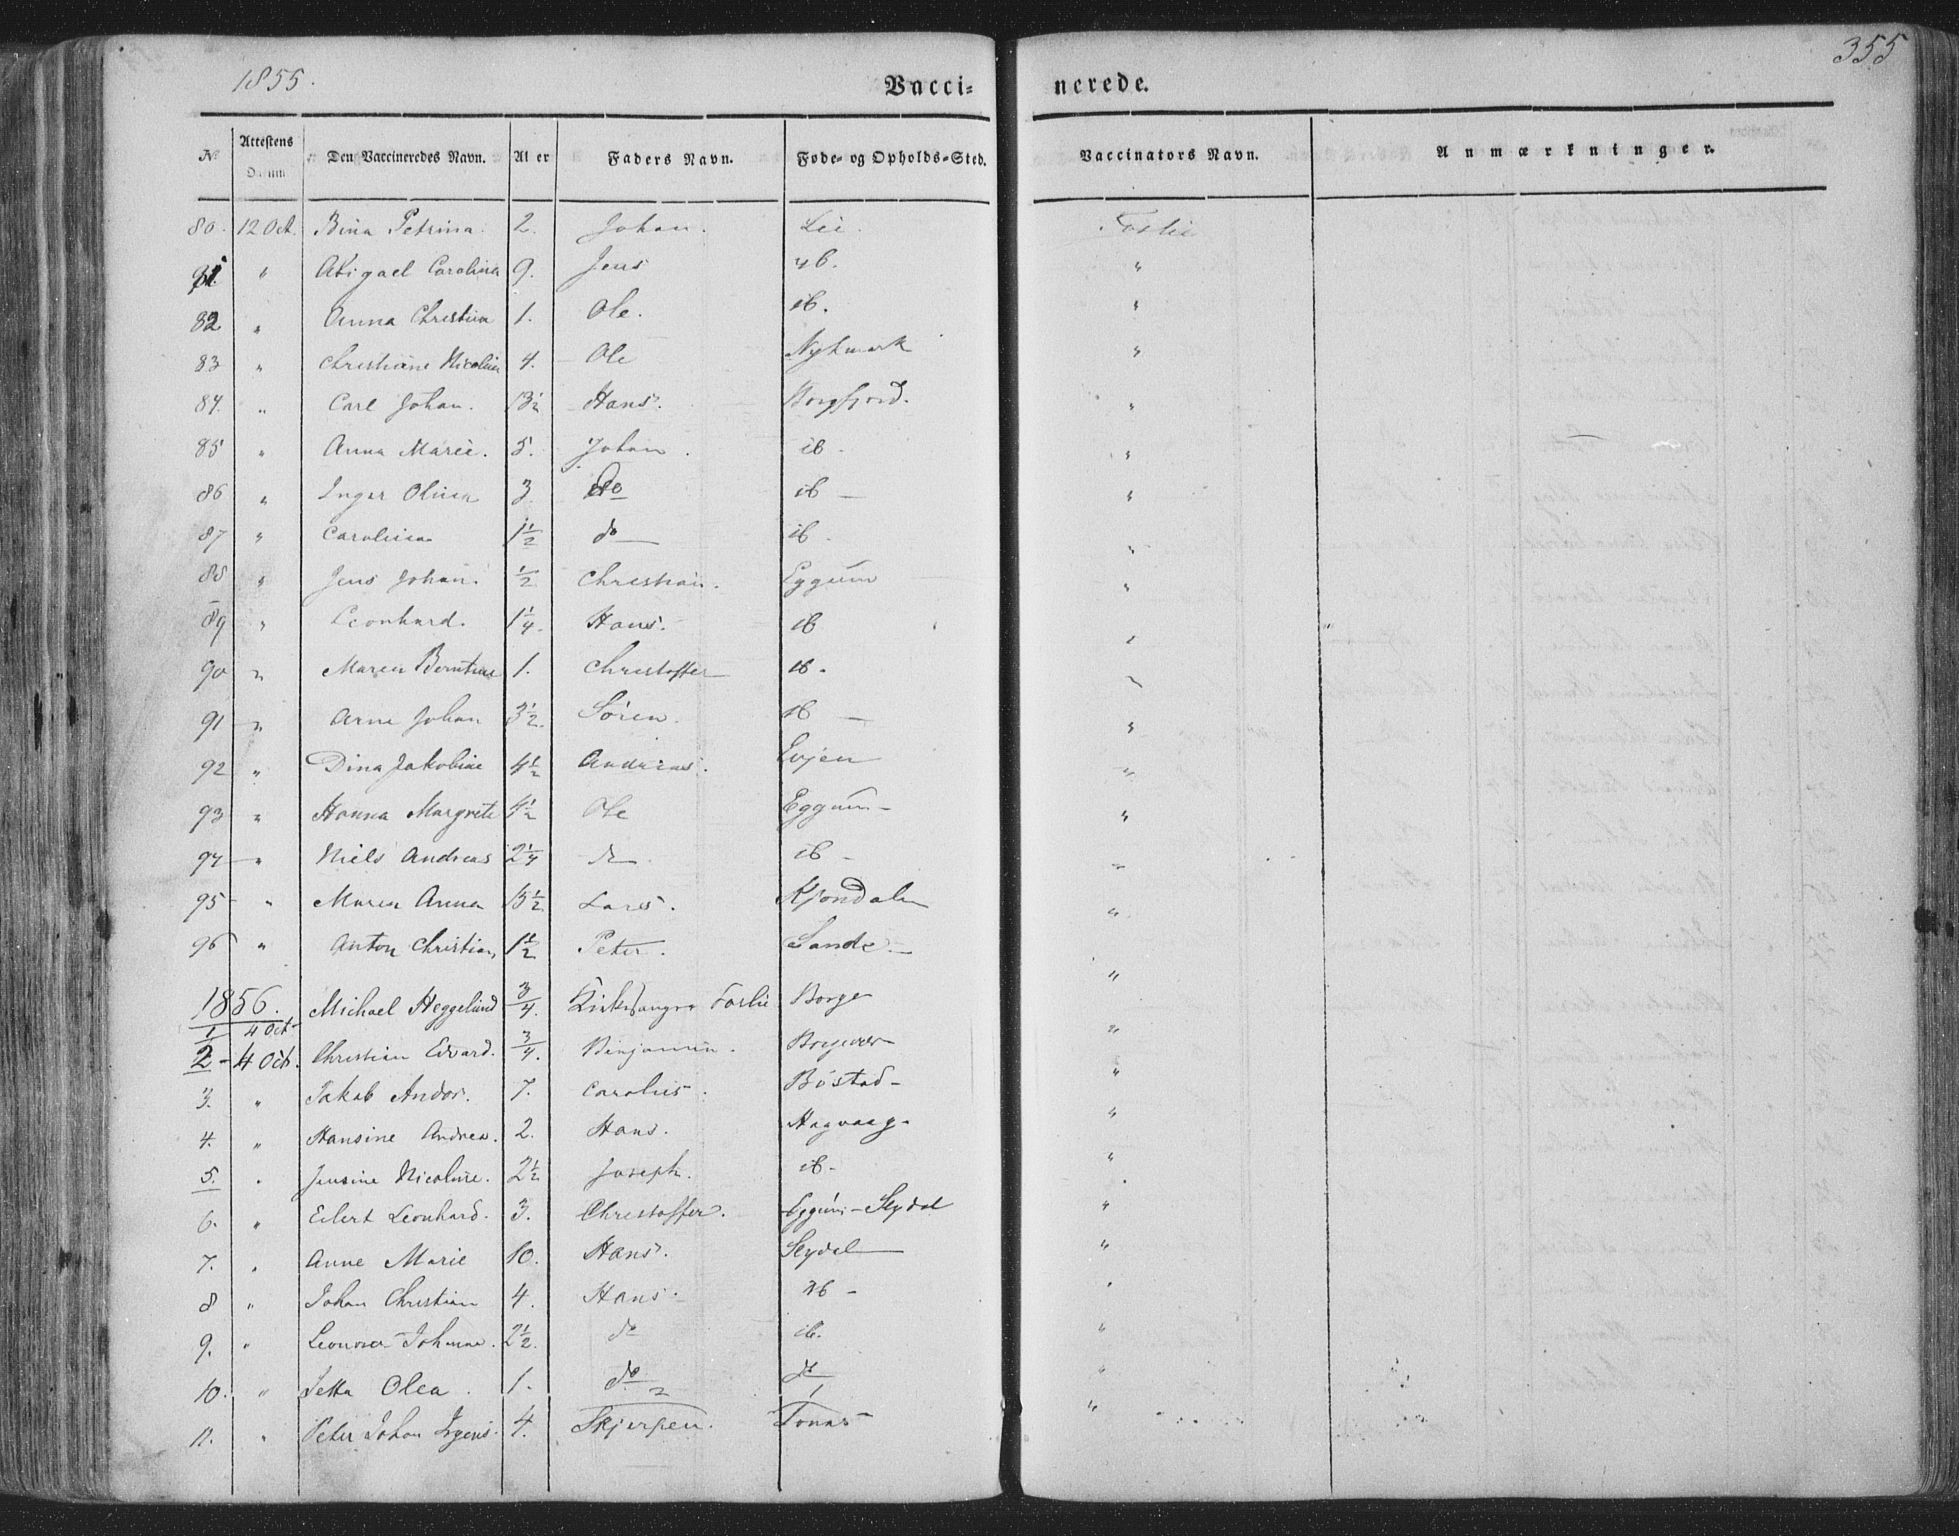 1855.
Vacci-
nerede.
355
№ Attestens Datum Den Vaccineredes Navn. Al er Faders Navn. Føde- og Opholds-Sted. Vaccinators Navn. Anmærkninger.
80. 12 Oct. Bina Petrina. 2. Johan. Lie. Foslie
81. " Abigael Carolina 9. Jens ib. "
82 " Anna Christina 1. Ole. ib. "
83 " Christiane Nicolina 4. Ole Nykmark "
84. " Carl Johan. 13½ Hans. Borgfjord. "
85 " Anna Marie. 5. Johan. ib. "
86 " Inger Olina 3 do ib "
87 " Carolina 1½ do ib. "
88 " Jens Johan. ½ Christian. Eggum "
89 " Leonhard. 1¼. Hans. ib "
90 " Maren Berntine 1. Christoffer ib. "
91 " Arne Johan 3½. Søren. ib "
92 " Dina Jakobine 4½ Andreas. Evjen "
93 " Hanna Margrete 4½ Ole Eggum "
94 " Niels Andreas 2¼ do ib "
95 " Maren Anna 15½ Lars. Kjøndalen "
96 " Anton Christian, 1½ Peter. Sande. "
1856.
1 4 Oct. Michael Heggelund ¾. Kirkesanger Foslie Borge "
2 4 Oct. Christian Edvard. ¾. Binjamin. Borgevær "
3. " Jakob Andor. 7. Carolus. Bøstad "
4. " Hansine Andrea. 2. Hans. Hagvaag. "
5. " Jensine Nicoline. 2½ Joseph. ib. "
6. " Eilert Leonhard. 3. Christoffer. Eggum - Slydal "
7. " Anne Marie 10. Hans. Slydal "
8 " Johan Christian 4. Hans. ib "
9. " Leonora Johanna. 2½. do ib. "
10. " Jetta Olea. 1. do do "
11. " Peter Johan Irgens. 4. Skjerpen. Tonas "